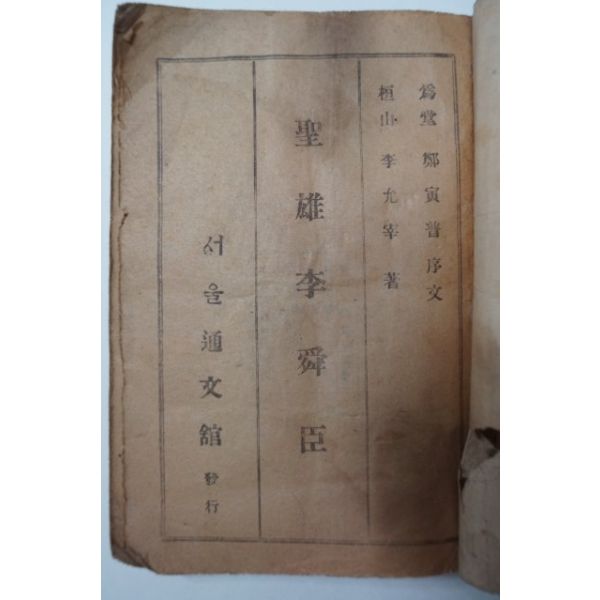 爲堂 鄭寅普 序文
桓山 李允宰 著
聖雄李舜臣
서울通文舘 發行